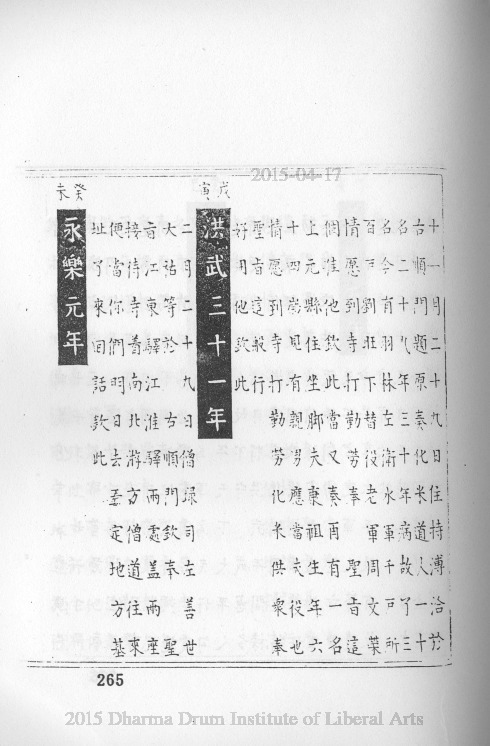 2015-04-17
十一月二十九日住持溥洽於
右順門題原奏化米道人一十
名二十九年三十年病故了三
名今有羽林左衛水軍千戶所
百戶劉旺下替役老軍周文葉
情愿到寺打勤勞奉聖旨這
個准他欽此當又奏再有一名
上元縣住坐脚夫康祖生年六
十四歲見有親男應當夫役也
情愿到寺打勤勞化米供衆奏
聖旨這般行
好用他欽此
戊寅
洪武三十一年
二月二十九日僧录司左善世
大祐等於右順門欽奉聖
旨江東驛江淮驛兩處盖兩座
接待寺着南北游方僧道往來
便當你們明日去定地方基
址了來回話欽此
癸未
永樂元年
265
2015 Dharma Drum Institute of Liberal Arts